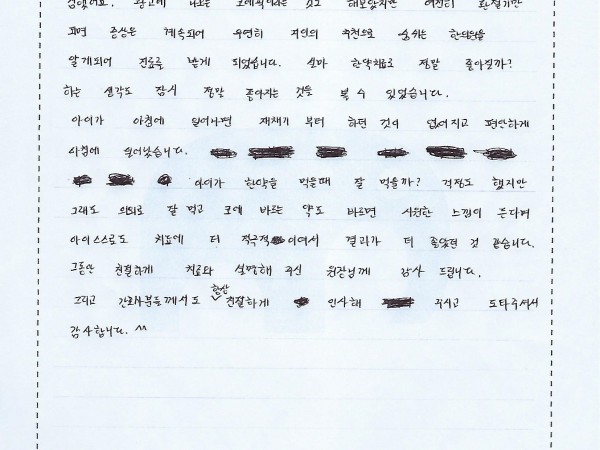 해보았지만 여전히 환절기만
되면 증상은 계속되어 우연히 지인의 추천으로 숨쉬는 한의원을
알게되어 진료를 받게 되었습니다. 설마 한약치료로 정말 좋아질까?
하는 생각도 잠시 정말 좋아지는 것을 볼 수 있었습니다.
아이가 아침에 일어나면 재채기 부터 하던 것이 없어지고 편안하게
아침에 일어났습니다.
아이가 한약을 먹을때 잘 먹을까? 걱정도 했지만
그래도 의외로 잘 먹고 코에 바르는 약도 바르면 시원한 느낌이 든다며
아이스스로도 치료에 더 적극적이여서 결과가 더 좋았던 것 같습니다.
그동안 친절하게 치료와 설명해 주신 원장님께 감사 드립니다.
그리고 간호사분들께서도 항상 친절하게 인사해 주시고 도와주셔서
감사합니다. ^^